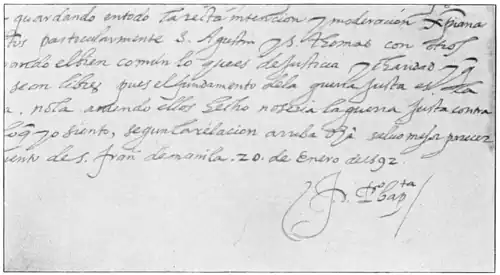 guardando entodo la recta intencion y moderacion xp̄iana
tos particularmente S. Agustin y S. Thomas con otros
ando el bien comun lo que es de Justicia y charidad y
sean libres pues el fundamento dela guerra justa es
a. no la aviendo ellos hecho no seria la guerra justa contra
lo q yo siento, segun la relacion arriba salvo mejor parecer
iento de S. Fran de manila. 20. de Enero de 92.
bapta